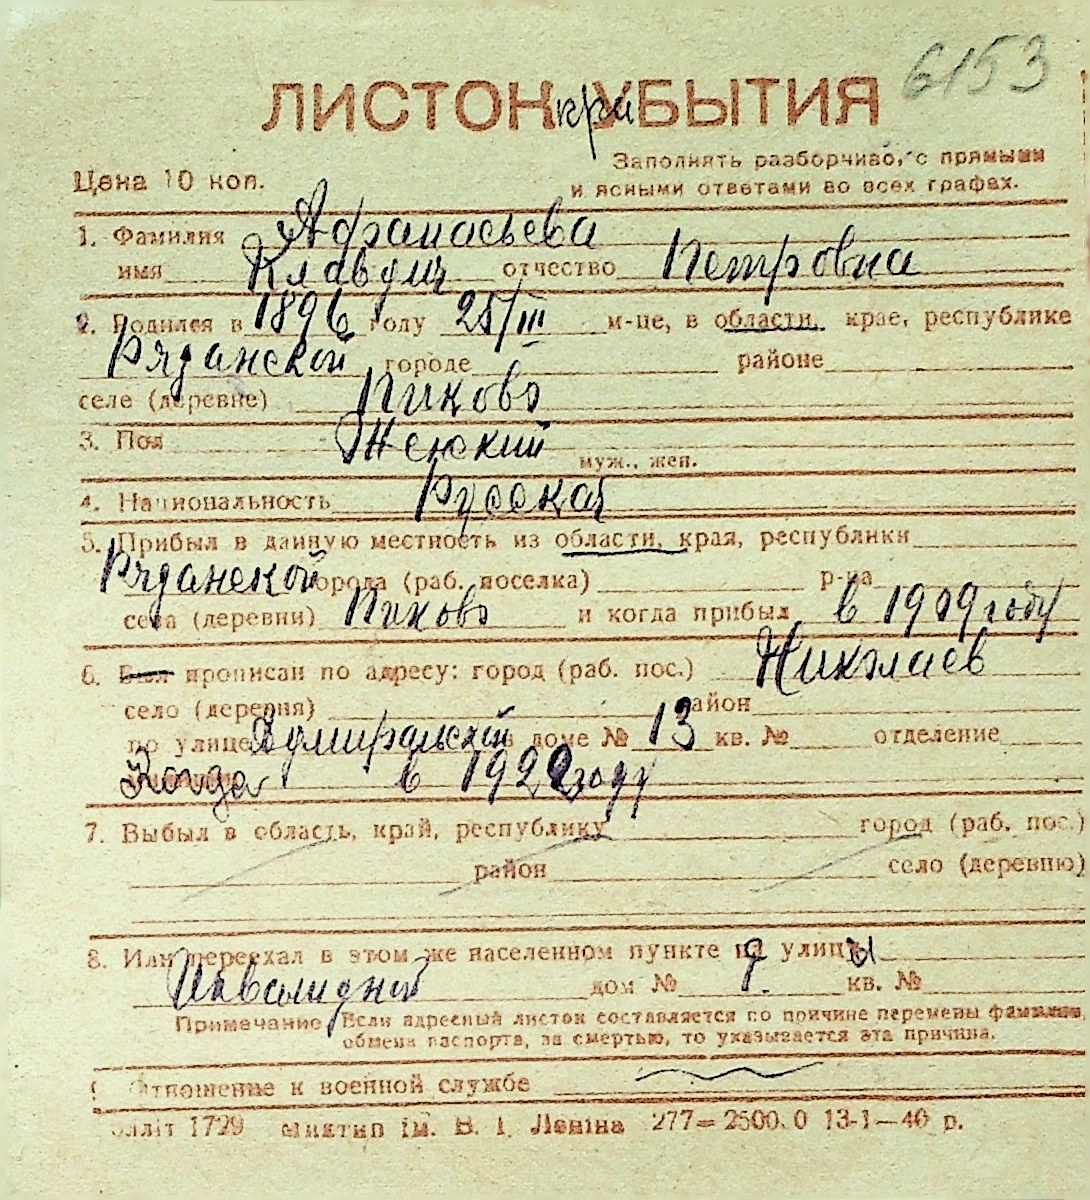 6153
ЛИСТОК при УБЫТИЯ
Цена 10 коп.
Заполнять разборчиво, с прямыми
и ясными ответами во всех графах.
1. Фамилия Афанасьева
имя Клавдия отчество Петровна
2. Родился в 1896 году 25/III м-це, в области, крае, республике
Рязанской городе районе
селе (деревне) Пиково
3. Пол Женский муж., жен.
4. Национальность Русская
5. Прибыл в данную местность из области, края, республики
Рязанской города (раб. поселка) р-на
села (деревни) Пиково и когда прибыл в 1909 году
6. Был прописан по адресу: город (раб. пос.) Николаев
село (деревня) район
по улице в доме № 13 кв. № отделение
Когда в 1922 году
7. Выбыл в область, край, республику город (раб. пос.)
район село (деревню)
8. Или переехал в этом же населенном пункте на улицы
Инвалидной дом № 9. кв. №
Примечание Если адресный листок составляется по причине перемены фамилии,
обмена паспорта, за смертью, то указывается эта причина.
9. Отношение к военной службе
1729 ім. В. І. Леніна 277—2500.0 13-1—40 р.